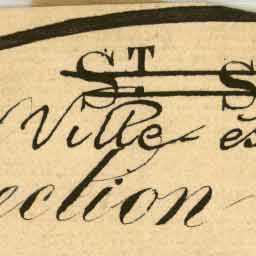 ST S
Ville és
ection